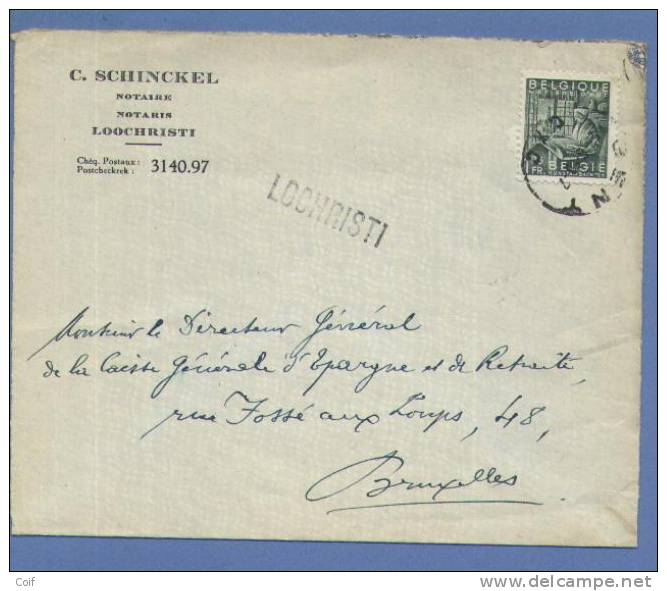 C. SCHINCKEL
NOTAIRE
NOTARIS
LOOCHRISTI
Chèq. Postaux :
Postcheckrek : 3140.97
BELGIQUE
BELGIE
FR.
LOCHRISTI
Monsieur le Directeur Général
de la Caisse Générale d'Epargne et de Retraite,
rue Fossé aux Loups, 48,
Bruxelles
Coif
delcampe.net